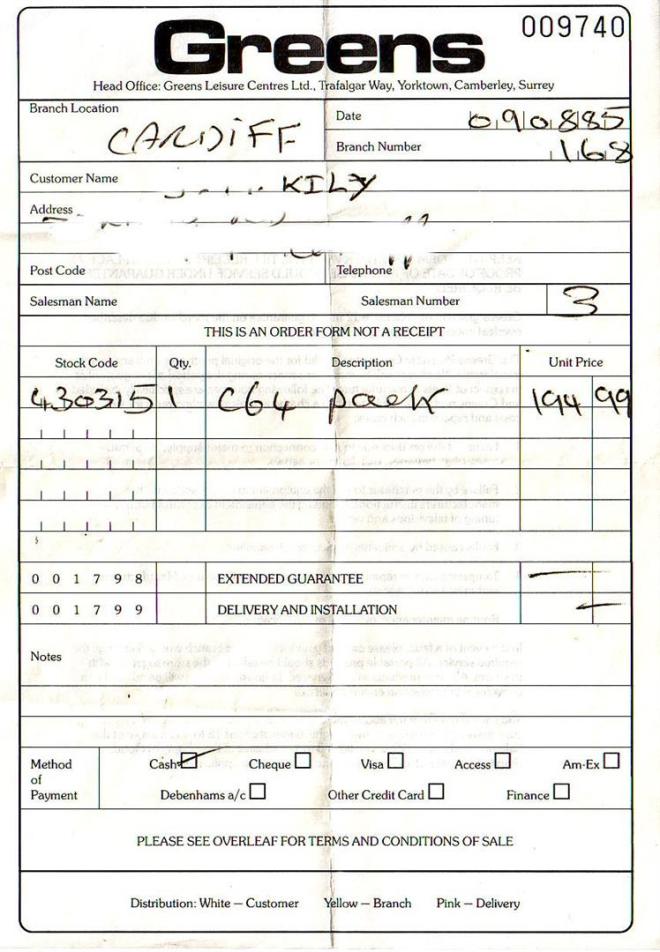 009740
Greens
Head Office: Greens Leisure Centres Ltd., Trafalgar Way, Yorktown, Camberley, Surrey
Branch Location CARDIFF
Date 090885
Branch Number 168
Customer Name KILY
Address
Post Code Telephone
Salesman Name Salesman Number 3
THIS IS AN ORDER FORM NOT A RECEIPT
Stock Code Qty. Description Unit Price
430315 1 C64 pack 194 99
0 0 1 7 9 8 EXTENDED GUARANTEE —
0 0 1 7 9 9 DELIVERY AND INSTALLATION —
Notes
Method of Payment
Cash Cheque Visa Access Am-Ex
Debenhams a/c Other Credit Card Finance
PLEASE SEE OVERLEAF FOR TERMS AND CONDITIONS OF SALE
Distribution: White — Customer Yellow — Branch Pink — Delivery